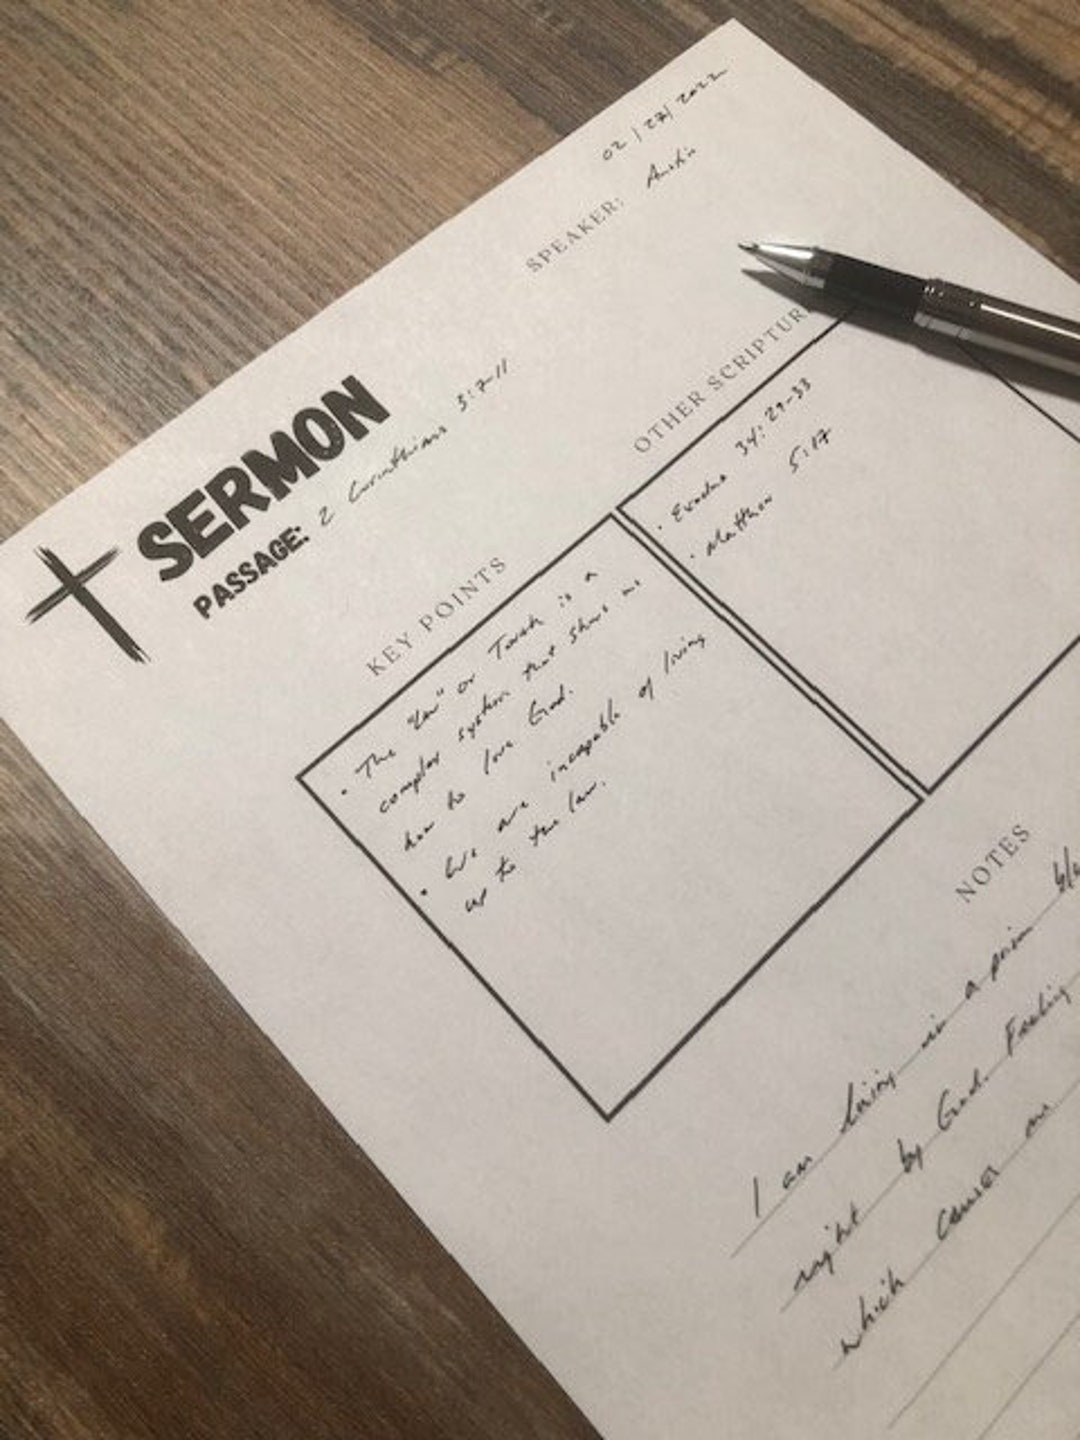 02/27/2022
SPEAKER: Austin
SERMON
PASSAGE: 2 Corinthians 3:7-11
KEY POINTS
• The "Law" or Torah is a
complex system that shows us
how to love God.
• We are incapable of living
up to the law.
OTHER SCRIPTUR
• Exodus 34:29-33
• Matthew 5:17
NOTES
I am living in a prison
right by God. Feeling
which causes me